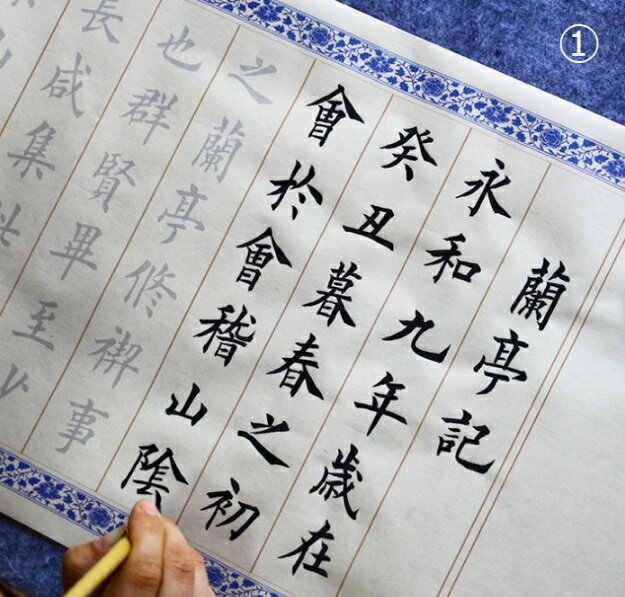 ①
蘭亭記
永和九年歲在
癸丑暮春之初
會於會稽山陰
之蘭亭修禊事
也群賢畢至少
長咸集此